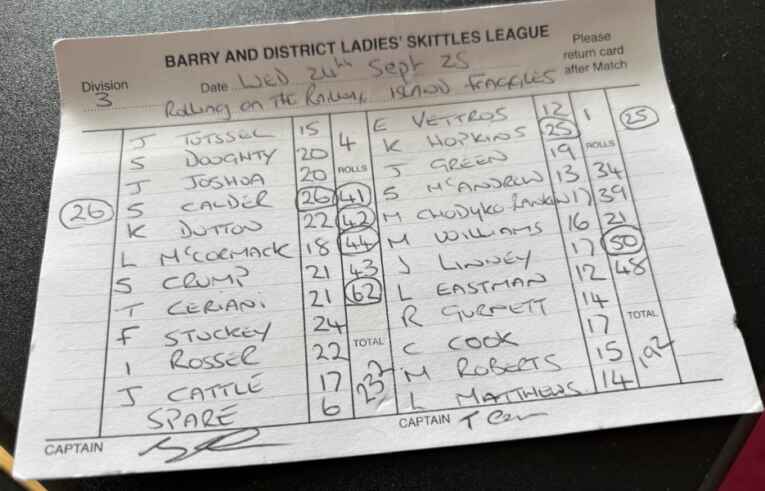 BARRY AND DISTRICT LADIES' SKITTLES LEAGUE
Division 3
Date WED 24th Sept 25
Please return card after Match
Rolling on the Railway ISLAND FRAGGLES
J TUTSSEL 15 4 E VETTROS 12 1 25
S DOUGHTY 20 K HOPKINS 25
J JOSHUA 20 ROLLS J GREEN 19 ROLLS
26 S CALDER 26 41 S McANDREW 13 34
K DUTTON 22 42 M 17 39
L McCORMACK 18 44 M WILLIAMS 16 21
S CRUMP 21 43 J LINNEY 17 50
T CERIANI 21 62 L EASTMAN 12 48
F STUCKEY 24 R GURMETT 14
I ROSSER 22 TOTAL C COOK 17 TOTAL
J CATTLE 17 232 M ROBERTS 15 192
SPARE 6 L MATTHEWS 14
CAPTAIN
CAPTAIN